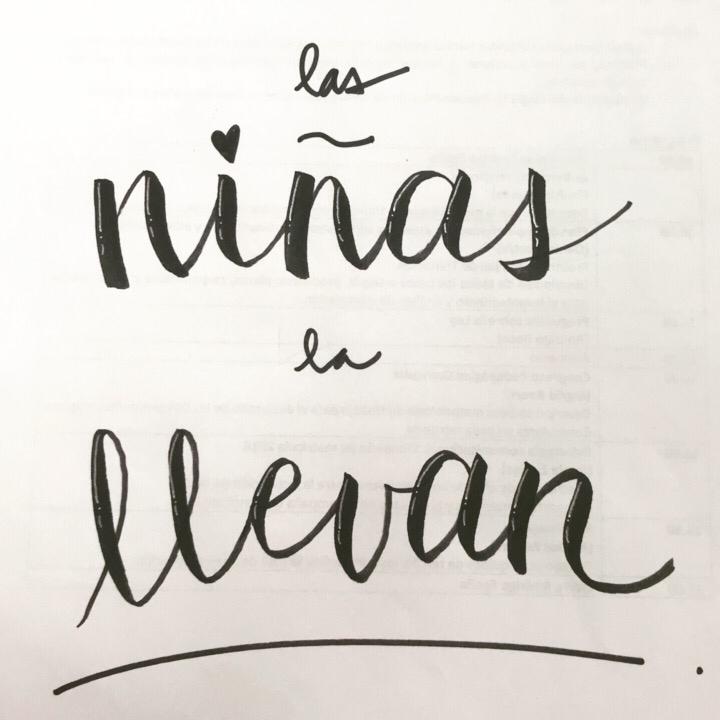 las
niñas
la
llevan